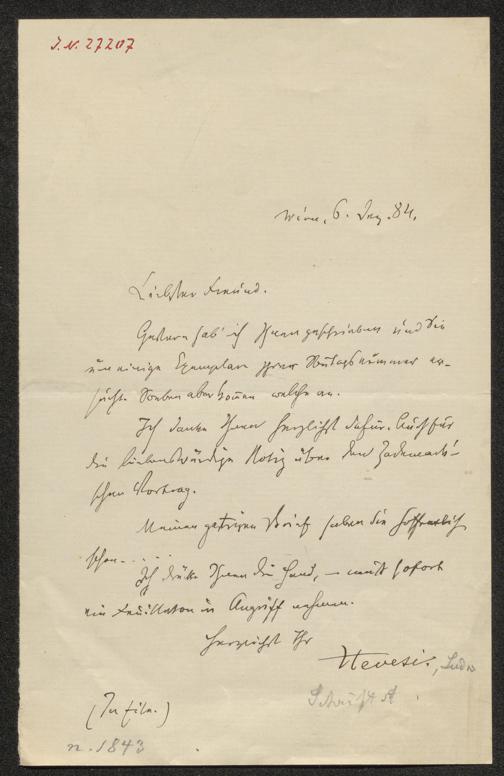 J. N. 27207
Wien, 6. Dez. 84.
Liebster Freund.
Gestern hab' ich Ihnen geschrieben und Sie
um einige Exemplare Ihrer Montagsnummer er-
sucht. Soeben aber kommen welche an.
Ich danke Ihnen herzlichst dafür. Auch für
die liebenswürdige Notiz über den
schen Vortrag.
Meinen gestrigen Brief haben Sie hoffentlich
schon. . . . .
Ich drücke Ihnen die Hand, – muß sofort
ein Feuilleton in Angriff nehmen.
Herzlichst Ihr
Hevesi, Ludw
(In Eile.)
n. 1843